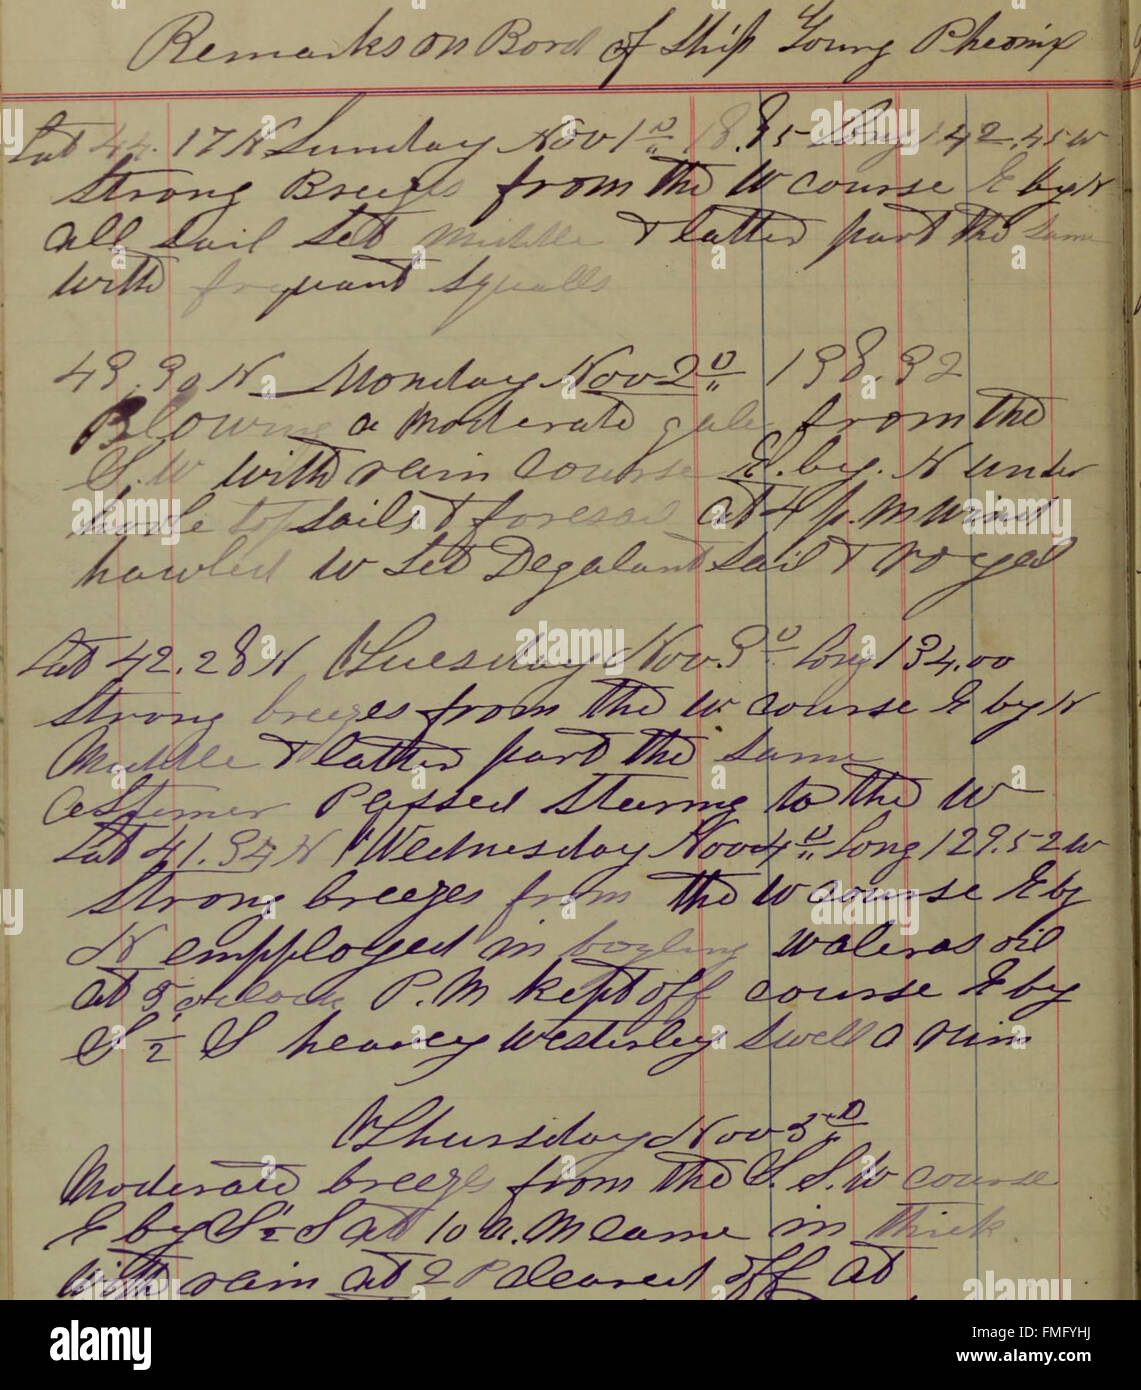 Remarks on Bord of Ship Young Pheonix
Lat 44.17 N Sunday Nov 1D 1885 Long 142.45 W
Strong Breezes from the W course E by N
all sail set Middle & latter part the same
with frequant squalls
43.30 N Monday Nov 2D 138.32
Blowing a moderate gale from the
S.W with rain course E. by. N under
hole topsails & foresail at 4 p.M wind
hawled W set Degalant sail & royed
Lat 42.28 N Tuesday Nov. 3D Long 134.00
Strong breezes from the W course E by N
Middle & latter part the same
a stemer Passed steering to the W
Lat 41.34 N Wednesday Nov 4D Long 129.52 W
Strong breezes from the W course E by
N empployed in waleras oil
at 3 oclock P.M kept off course E by
S 1/2 S heavey westerley swell a
Thursday Nov 5D
Moderate breezes from the S.S.W course
E by S 1/2 S at 10 a.M came in thick
with rain at 2 P cleared off at
alamy
Image ID: FMFYHJ
www.alamy.com